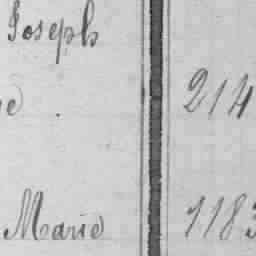 Joseph
e . 214
Marie 1183